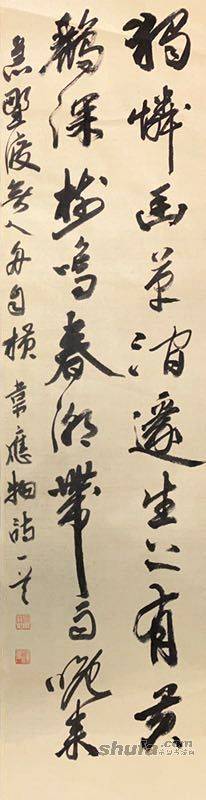 獨憐幽草澗邊生上有黄
鸝深樹鳴春潮帶雨晚來
急野渡無人舟自横 韋應物詩一首